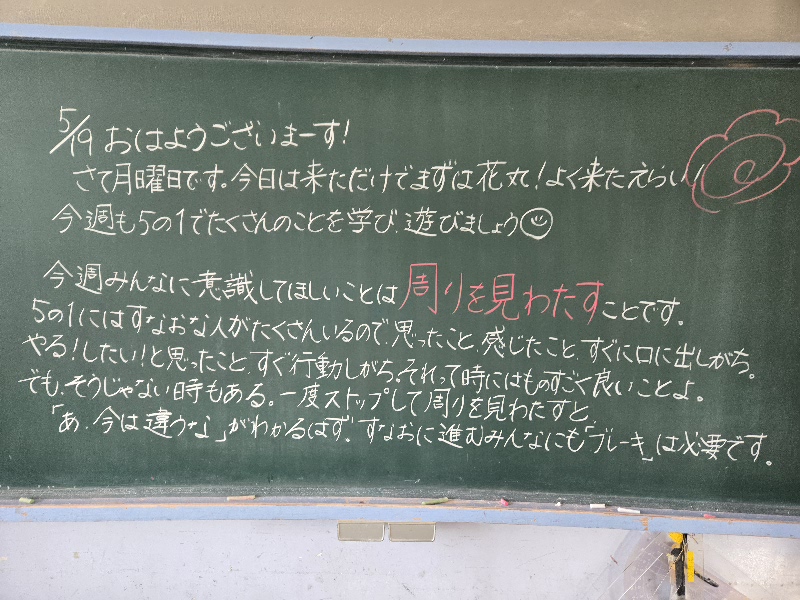 5/19 おはようございまーす!
さて月曜日です。今日は来ただけでまずは花丸!よく来たえらい!
今週も5の1でたくさんのことを学び、遊びましょう
今週みんなに意識してほしいことは周りを見わたすことです。
5の1にはすなおな人がたくさんいるので、思ったこと、感じたこと、すぐに口に出しがち。
やる!したい!と思ったこと、すぐ行動しがち。それって時にはものすごく良いことよ。
でも、そうじゃない時もある。一度ストップして周りを見わたすと、
「あ、今は違うな」がわかるはず。すなおに進むみんなにも「ブレーキ」は必要です。